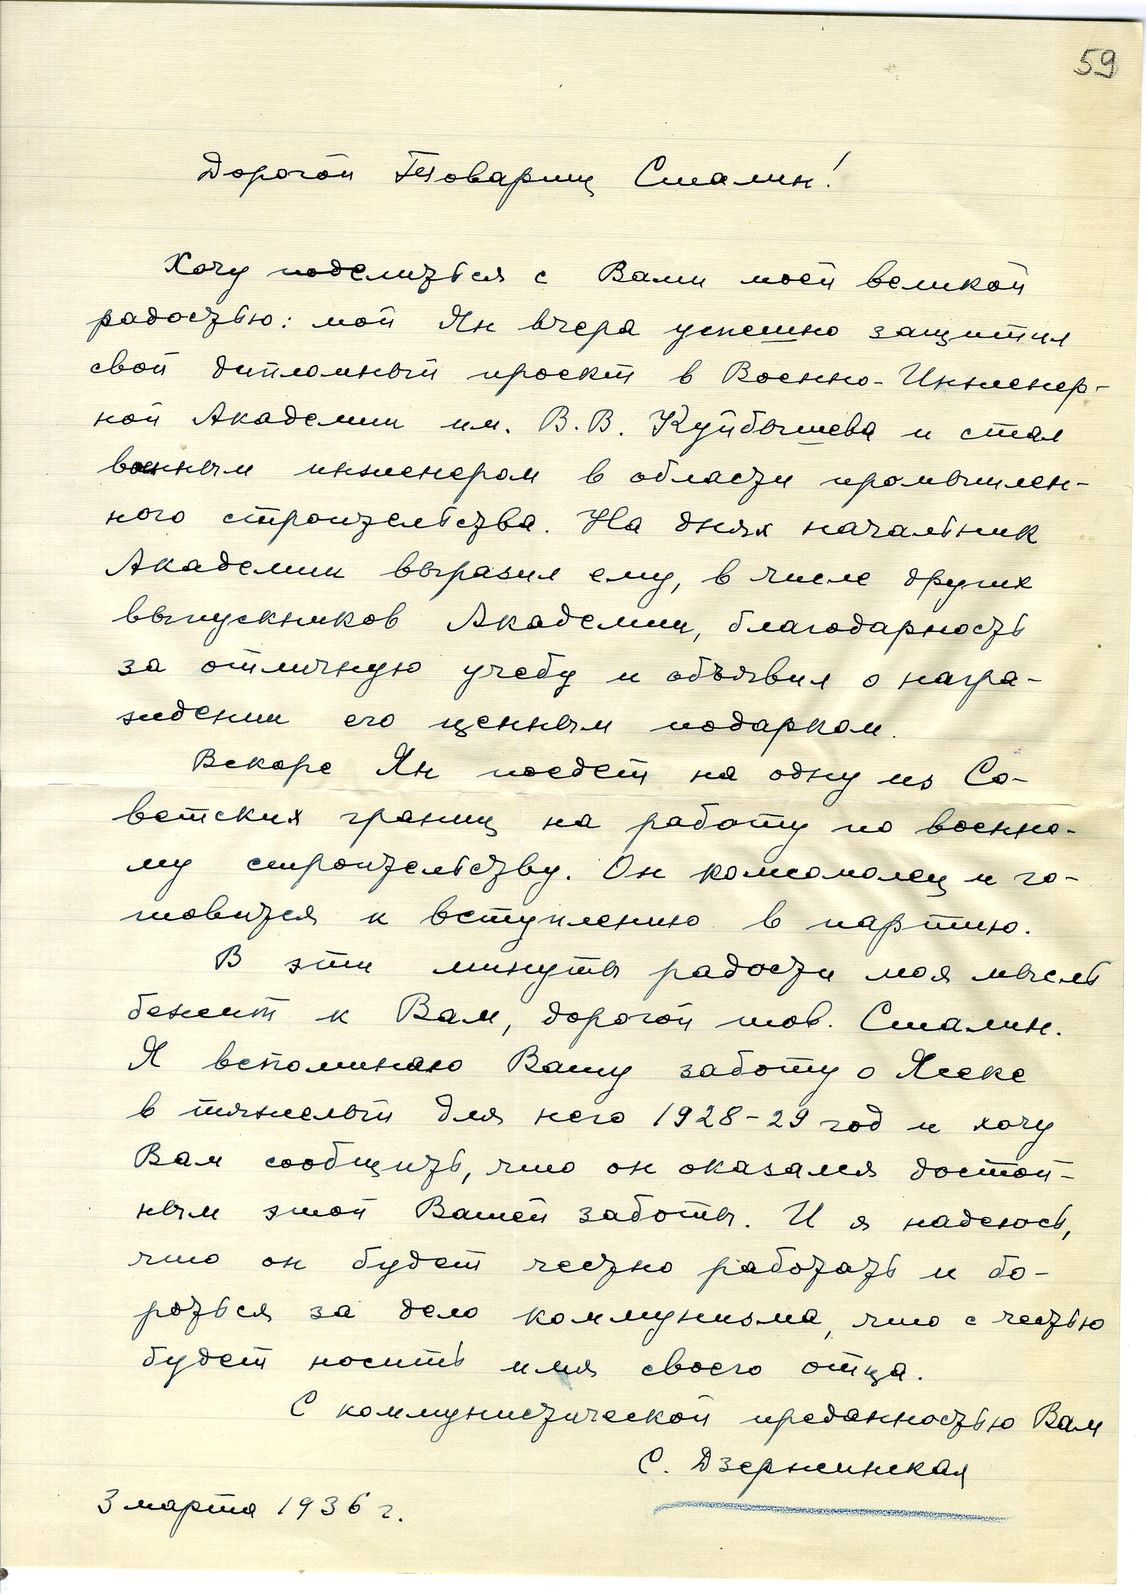 59
Дорогой Товарищ Сталин!
Хочу поделиться с Вами моей великой
радостью: мой Ян вчера успешно защитил
свой дипломный проект в Военно-Инженер-
ной Академии им. В.В. Куйбышева и стал
военным инженером в области промышлен-
ного строительства. На днях начальник
Академии выразил ему, в числе других
выпускников Академии, благодарность
за отличную учебу и объявил о награ-
ждении его ценным подарком.
Вскоре Ян поедет на одну из Со-
ветских границ на работу по военно-
му строительству. Он комсомолец и го-
товится к вступлению в партию.
В эти минуты радости моя мысль
бежит к Вам, дорогой тов. Сталин.
Я вспоминаю Вашу заботу о Ясеке
в тяжелый для него 1928-29 год и хочу
Вам сообщить, что он оказался достой-
ным этой Вашей заботы. И я надеюсь,
что он будет честно работать и бо-
роться за дело коммунизма, что с честью
будет носить имя своего отца.
С коммунистической преданностью Вам
С. Дзержинская
3 марта 1936 г.